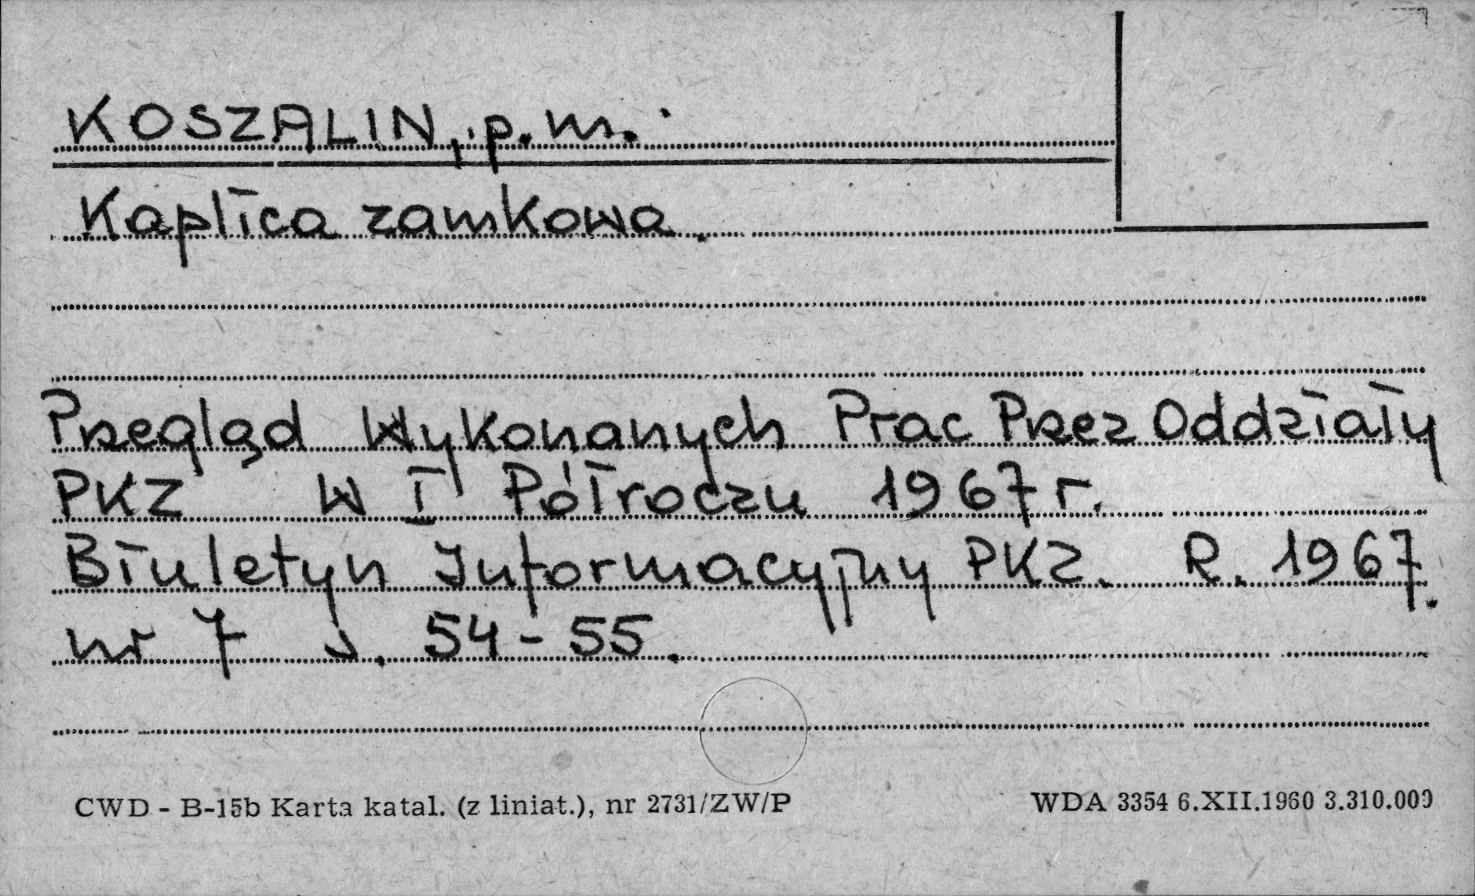 KOSZALIN, p.m.
Kaplica zamkowa.
Przegląd Wykonanych Prac Przez Oddziały
PKZ W I Półroczu 1967 r.
Biuletyn Informacyjny PKZ. R. 1967.
nr 7 s. 54-55.
CWD - B-15b Karta katal. (z liniat.), nr 2731/ZW/P
WDA 3354 6.XII.1960 3.310.000